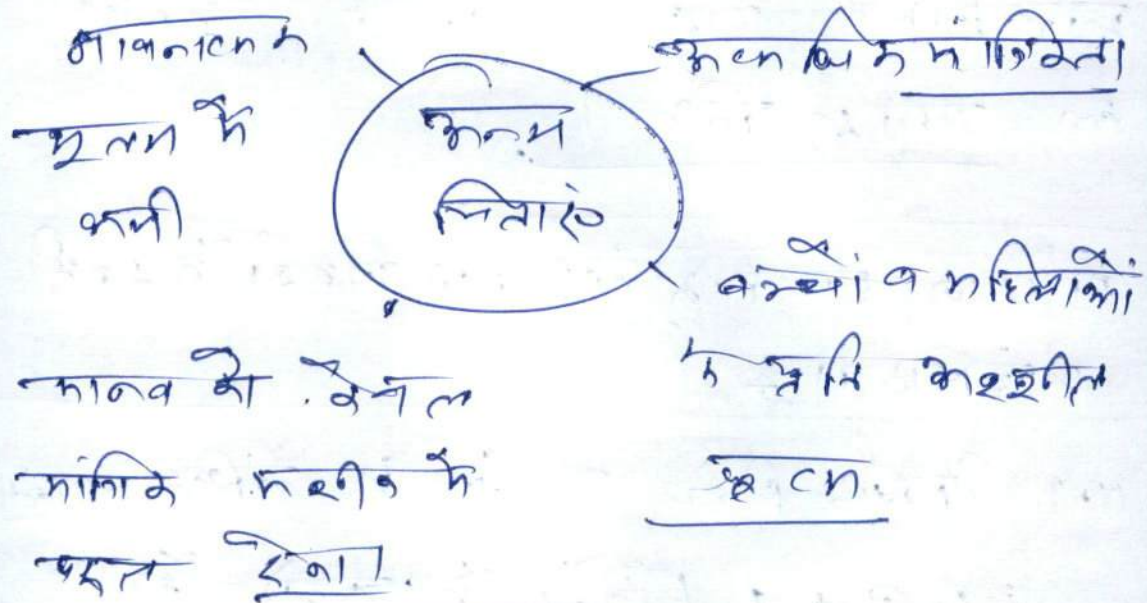 भावनात्मक
मूल्य में
कमी
अन्य
चिंताएं
अत्यधिक यांत्रिकता
बच्चों व महिलाओं
के प्रति अश्लील
कृत्य.
मानव को केवल
यांत्रिक मशीन में
बदल देना।